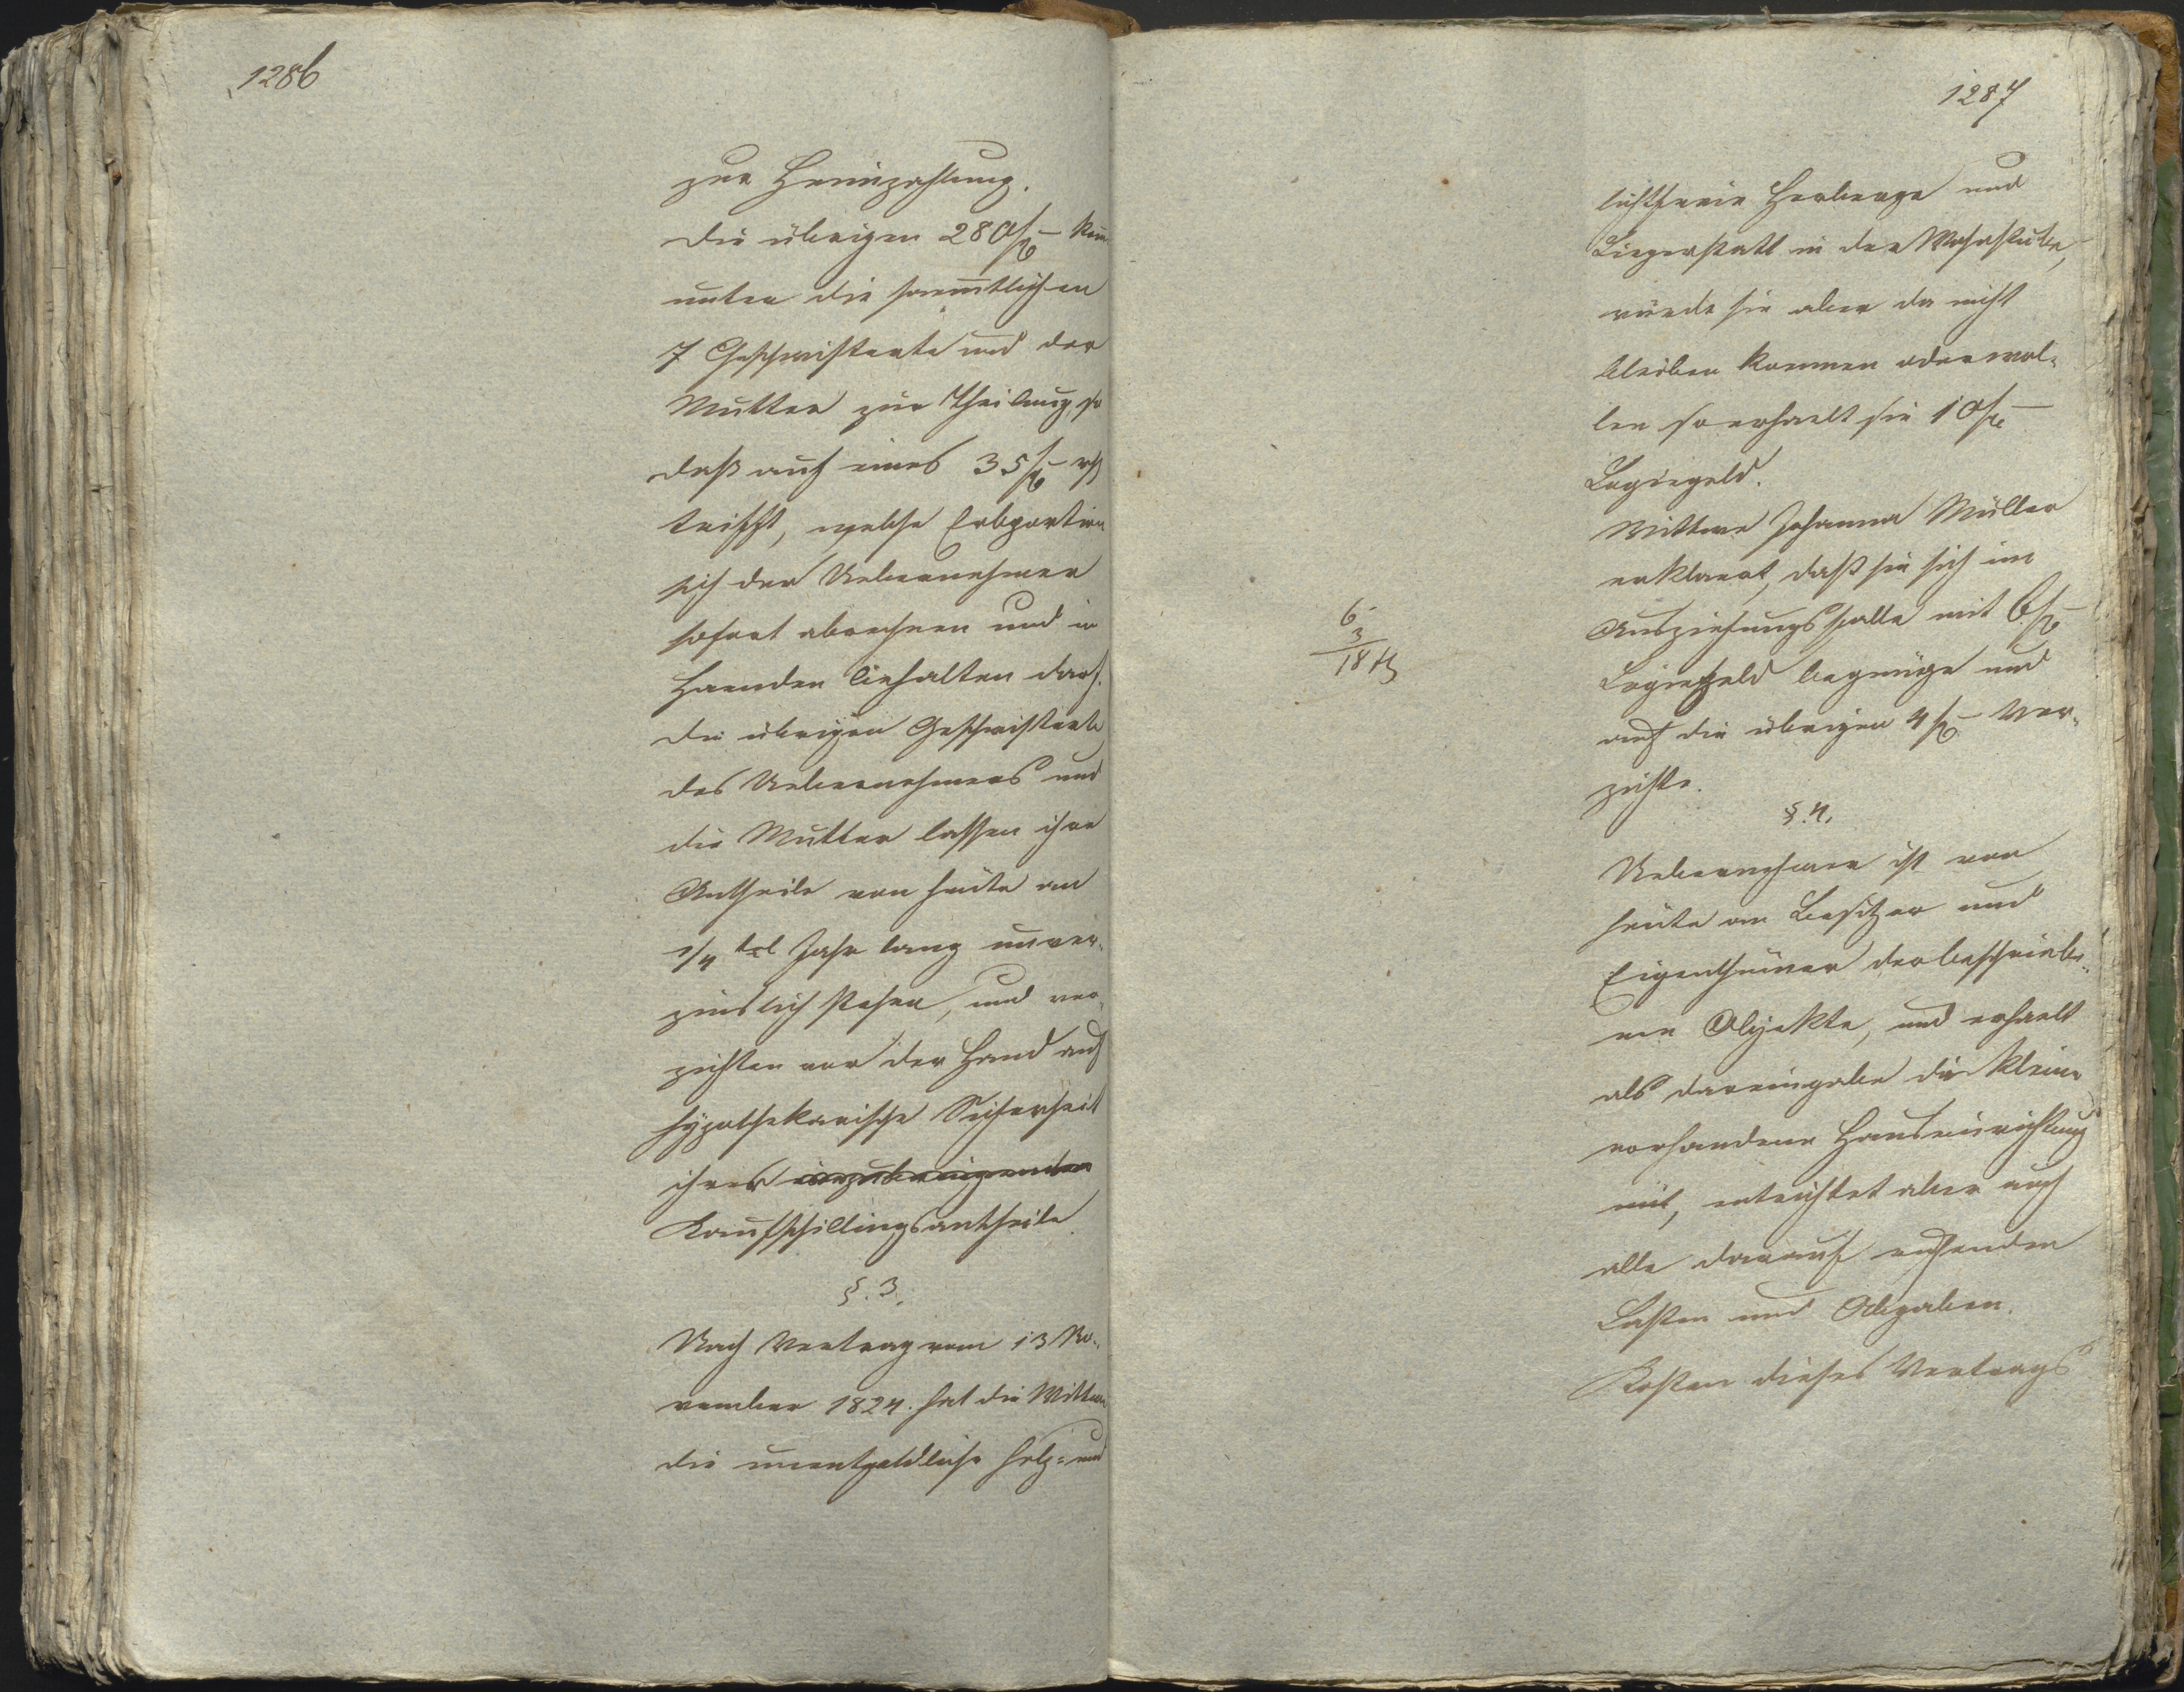 1286
zur Heimzahlung.
Die übrigen 280 f – kom̅
unter die saem̅tlichen
7 Geschwisterte und der
Mutter zur Theilung, so
daß auf eines 35 f –
trifft, welche Erbportion
sich der Uebernehmer
sofort abrechnen und in
Haenden behalten darf.
Die übrigen Geschwisterte
des Uebernehmers und
die Mutter lassen ihre
Antheile von heute an
1/4 tel Jahr lang unver-
zinslich stehen, und ver-
zichten vor der Hand auf
hypothekarische Sicherheit
ihrer
Kaufschillingsantheile.
§. 3.
Nach Vertrag vom 13 No-
vember 1824. hat die Mutter
die unentgeldliche holz- und
1287
lichtfreie Herberge und
Liegerstatt in der Wohnstube,
würde sie aber da nicht
bleiben koennen oder wol-
len so erhaelt sie 10 f –
Logiegeld.
Wittwe Johanna Müller
erklaert, daß sie sich im
Ausziehungsfalle mit 6 f –
Logiegeld begnüge und
auf die übrigen 4 f – ver-
zichte.
6
3
18 f
§. 4.
Uebernehmer ist von
heute an Besitzer und
Eigenthümer der beschriebe-
nen Objekte, und erhaelt
als Dareingabe die kleine
vorhandene Hauseinrichtung
mit, entrichtet aber auch
alle darauf ruhenden
Lasten und Abgaben.
Kosten dieses Vertrags